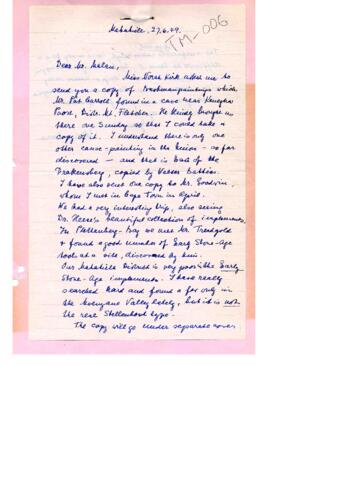 Mohahill, 27.6.49.
TM-006
Dear Mr. Malan,
Miss Norah Kirk asked me to
send you a copy of Bushmanpaintings which
Mr. Pat Carroll found in a cave near
Poort, Distr. Mt. Fletcher. He kindly brought us
there one Sunday so that I could take a
copy of it. I understand there is only one
other canoe-painting in the Union - so far
discovered - and that is East of the
Drakensberg, copied by
I have also sent one copy to Mr. Goodwin,
whom I met in Cape Town in April.
We had a very interesting trip, also seeing
Dr. Heese's beautiful collection of implements.
In Plettenberg-Bay we met Mr. Trendgold
& found a good number of Early Stone-Age
tools at a site, discovered by him.
Our District is very poor in the Early
Stone-Age implements. I have really
searched hard and found a few only in
the Valley lately, but it is not
the real Stellenbosch type.
The copy will go under separate cover